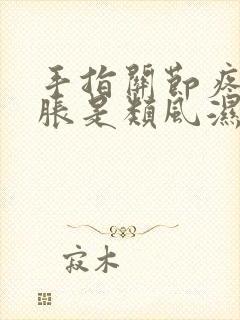 手指關節疼
脹是類風濕
寂木